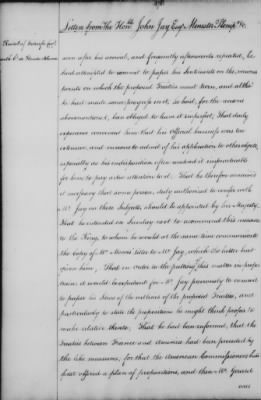 Letter from The Honble John Jay Esqr Minister Plenipo &c.
soon after his arrival, and frequently afterwards repeated, he
had attempted to commit to paper his Sentiments on the various
points on which the proposed Treaties must turn, and altho'
he had made some progress in it, he had, for the reasons
abovementioned, been obliged to leave it imperfect. That daily
experience convinced him that his official business was too
extensive, and various to admit of his application to other objects
especially as his indisposition often rendered it impracticable
for him to pay a due attention to it. That he therefore conceived
it necessary that some person, duly authorized to confer with
Mr Jay on these Subjects, should be appointed by his Majesty.
That he intended on Sunday next to recommend this measure
to the King, to whom he would at the same time communicate
the Copy of Mr Jay, which he latter had
given him, That in order to the putting this matter in proper
train, it would be expedient for Mr Jay previously to commit
to paper his Ideas of the outlines of the proposed Treaties, and
particularly to state the propositions he might think proper to
make relative thereto. That he had been informed, that the
treaties between France and America had been preceded by
the like measures, for that the American Commissioners had
first offered a plan of propositions, and then Mr Gerard